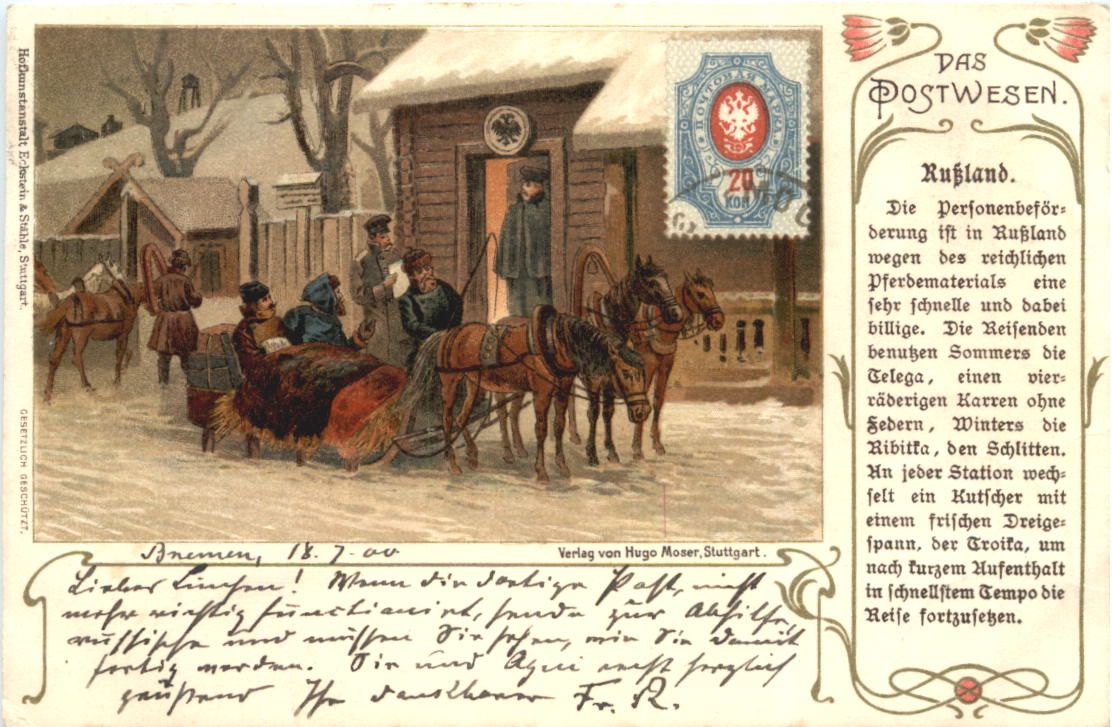 Hofkunstanstalt Eckstein & Stähle, Stuttgart.
GESETZLICH GESCHÜTZT.
ПОЧТОВАЯ МАРКА
20
КОП
DAS
POSTWESEN.
Rußland.
Die Personenbeför-
derung ist in Rußland
wegen des reichlichen
Pferdematerials eine
sehr schnelle und dabei
billige. Die Reisenden
benutzen Sommers die
Telega, einen vier-
räderigen Karren ohne
Federn, Winters die
Kibitka, den Schlitten.
An jeder Station wech-
selt ein Kutscher mit
einem frischen Dreige-
spann, der Troika, um
nach kurzem Aufenthalt
in schnellstem Tempo die
Reise fortzusetzen.
Verlag von Hugo Moser, Stuttgart.
Bremen, 18.7.00
Liebes Linchen! Wenn die dortige Post, nicht
mehr richtig functioniert, sende zur Abhilfe,
russische und müssen Sie sehen, wie Sie damit
fertig werden. Sie und recht herzlich
grüßend Ihr dankbarer Fr. R.